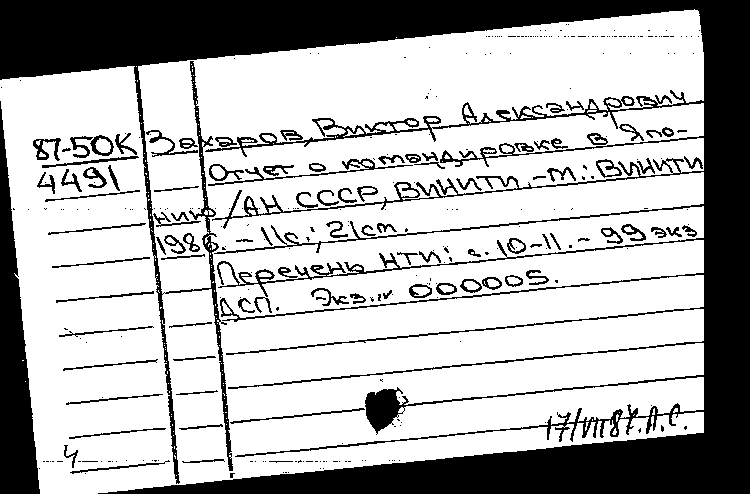 87-50К Захаров, Виктор Александрович
4491 Отчет о командировке в Япо-
нию / АН СССР, ВИНИТИ. - М.: ВИНИТИ
1986. - 11с.; 21см.
Перечень НТИ: с. 10-11. - 99 экз
ДСП. Экз. N 000005.
17/VII 87. А.С.
4